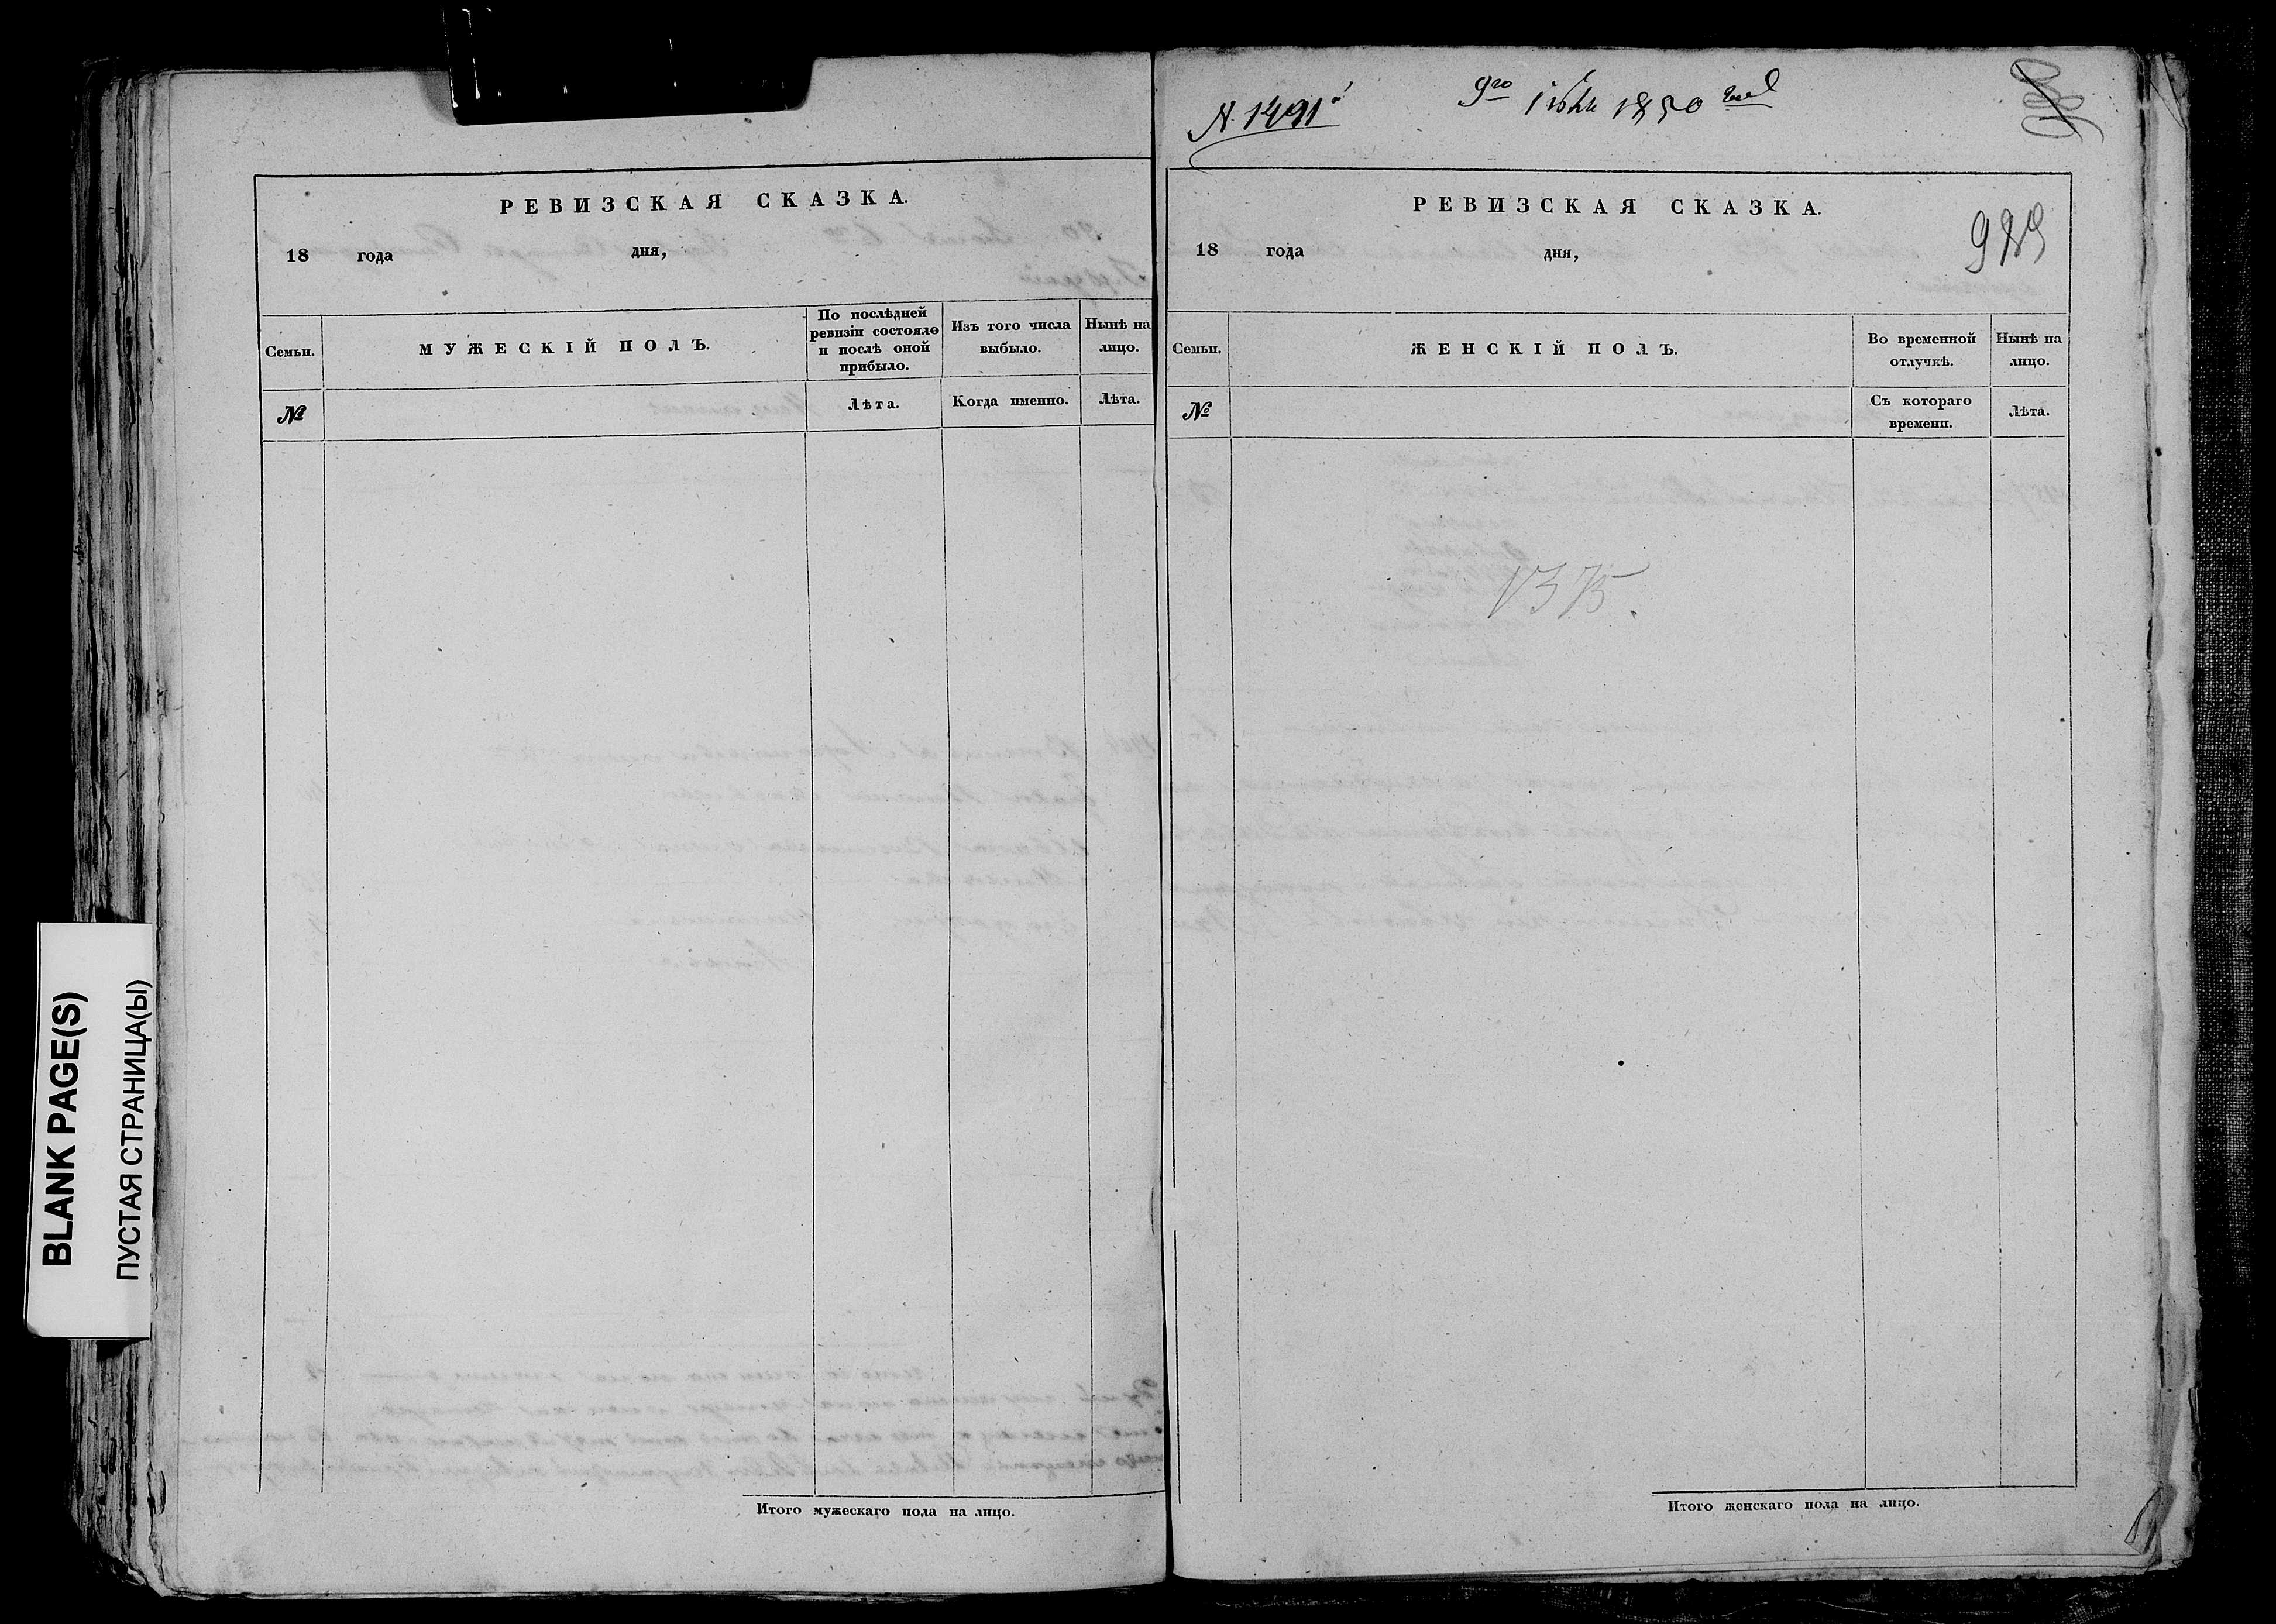 РЕВИЗСКАЯ СКАЗКА.
18 года дня,
Семьи.
МУЖЕСКІЙ ПОЛЪ.
По послѣдней ревизіи состояло и послѣ оной прибыло.
Изъ того числа выбыло.
Нынѣ на лицо.
№
Лѣта.
Когда именно.
Лѣта.
Итого мужескаго пола на лицо.
N. 1491
9го Іюня 1850 года
РЕВИЗСКАЯ СКАЗКА.
989
18 года дня,
Семьи.
ЖЕНСКІЙ ПОЛЪ.
Во временной отлучкѣ.
Нынѣ на лицо.
№
Съ котораго времени.
Лѣта.
Итого женскаго пола на лицо.
BLANK PAGE(S)
ПУСТАЯ СТРАНИЦА(Ы)